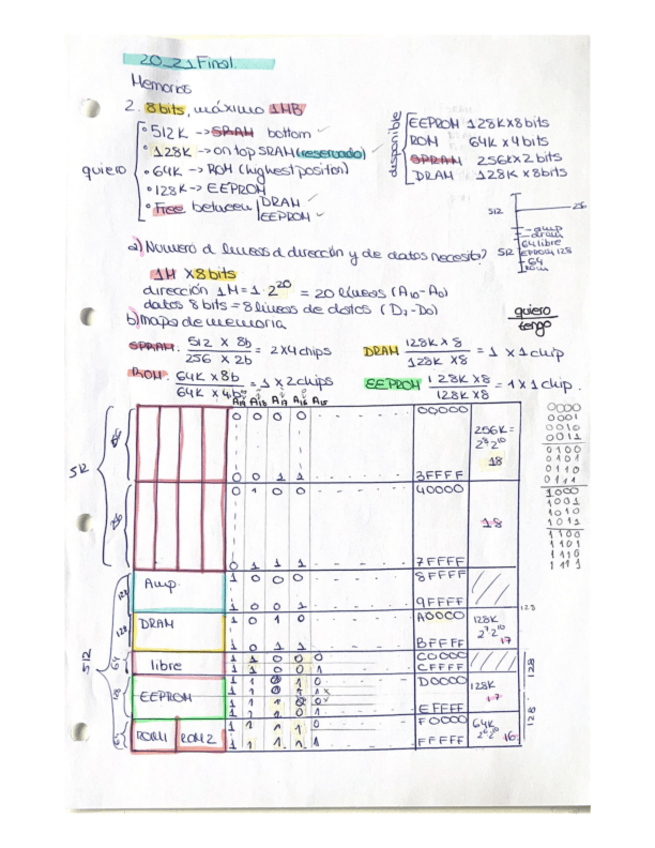 20_21 Final.
Memorias
2. 8bits, máximo 1MB
quiero
° 512K -> SRAM bottom ✓
° 128K -> on top SRAM (reservado) ✓
° 64K -> ROM (highest position)
° 128K -> EEPROM
° Free between DRAM
EEPROM ✓
disponible
EEPROM 128K x 8bits
ROM 64K x 4bits
SRAM 256K x 2bits
DRAM 128K x 8bits
512
256
amp
dram
64 libre
512 EEPROM 128
64
Rom
a) Número d líneas d dirección y de datos necesito?
1M x 8bits
dirección 1M = 1·2^20 = 20 líneas (A19-A0)
datos 8 bits = 8 líneas de datos (D7-D0)
quiero
tengo
b) mapa de memoria
SRAM: 512 x 8b / 256 x 2b = 2 x 4 chips
DRAM 128K x 8 / 128K x 8 = 1 x 1 chip
ROM: 64K x 8b / 64K x 4b = 1 x 2 chips
EEPROM 128K x 8 / 128K x 8 = 1 x 1 chip.
A19 A18 A17 A16 A15
0 0 0 0 00000
256K =
2^8 2^10
18
0 0 1 1 3FFFF
512
0 1 0 0 40000
18
0 1 1 1 7FFFF
128 Amp. 1 0 0 0 8FFFF
1 0 0 1 9FFFF
128
128 DRAM 1 0 1 0 A0000 128K
2^7 2^10 17
1 0 1 1 BFFFF
512
64 libre 1 1 0 0 0 C0000
1 1 0 0 1 CFFFF
128
EEPROM D0000 128K
17
EFFFF
128
ROM1 ROM2 1 1 1 1 0 F0000 64K
2^6 2^10 16
1 1 1 1 1 FFFFF
0000
0001
0010
0011
0100
0101
0110
0111
1000
1001
1010
1011
1100
1101
1110
1111